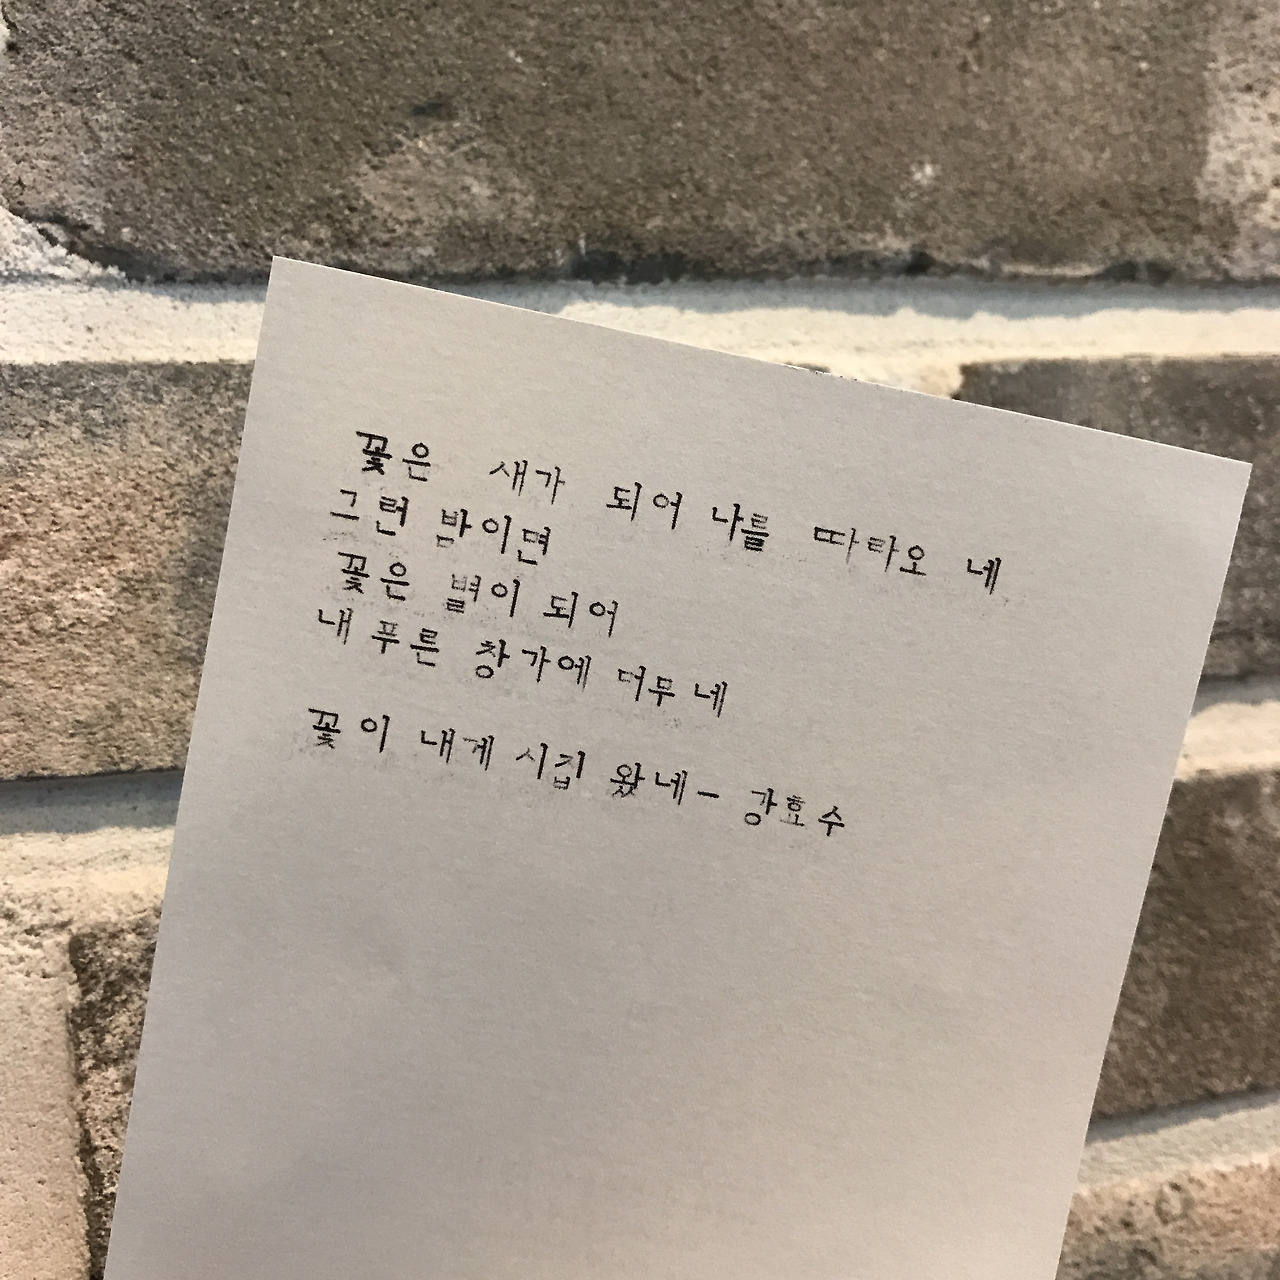 꽃은 새가 되어 나를 따라오 네
그런 밤이면
꽃은 별이 되어
내 푸른 창가에 더두 네
꽃이 내게 시집 왔네 - 강효수